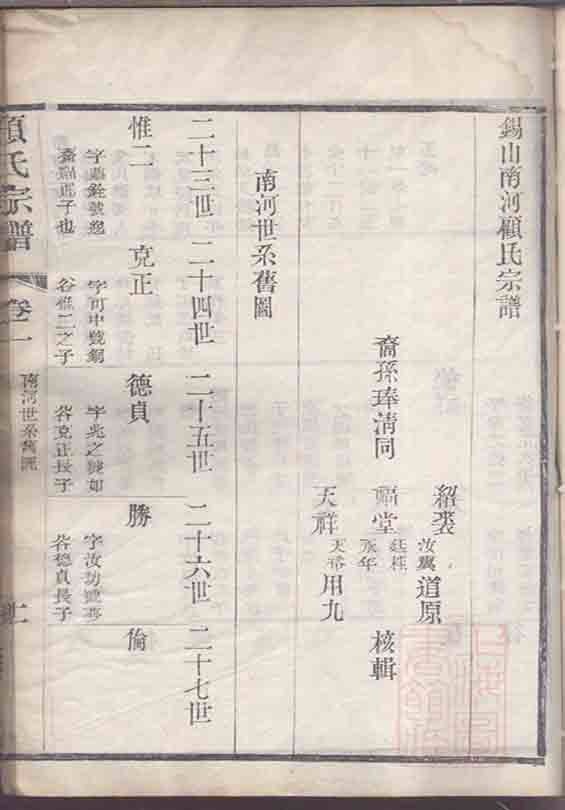 錫山南河顧氏宗譜
紹裘
汝翼 道原
裔孫琫清同 福堂 廷桂 永年 核輯
天祥 天裕 用九
南河世系舊圖
二十三世 二十四世 二十五世 二十六世 二十七世
惟二 克正 德貞 勝 倫
字可中號
谷惟二之子
字兆之號如
谷克正長子
字汝功號
谷德貞長子
子也
顧氏宗譜 卷一 南河世系舊圖